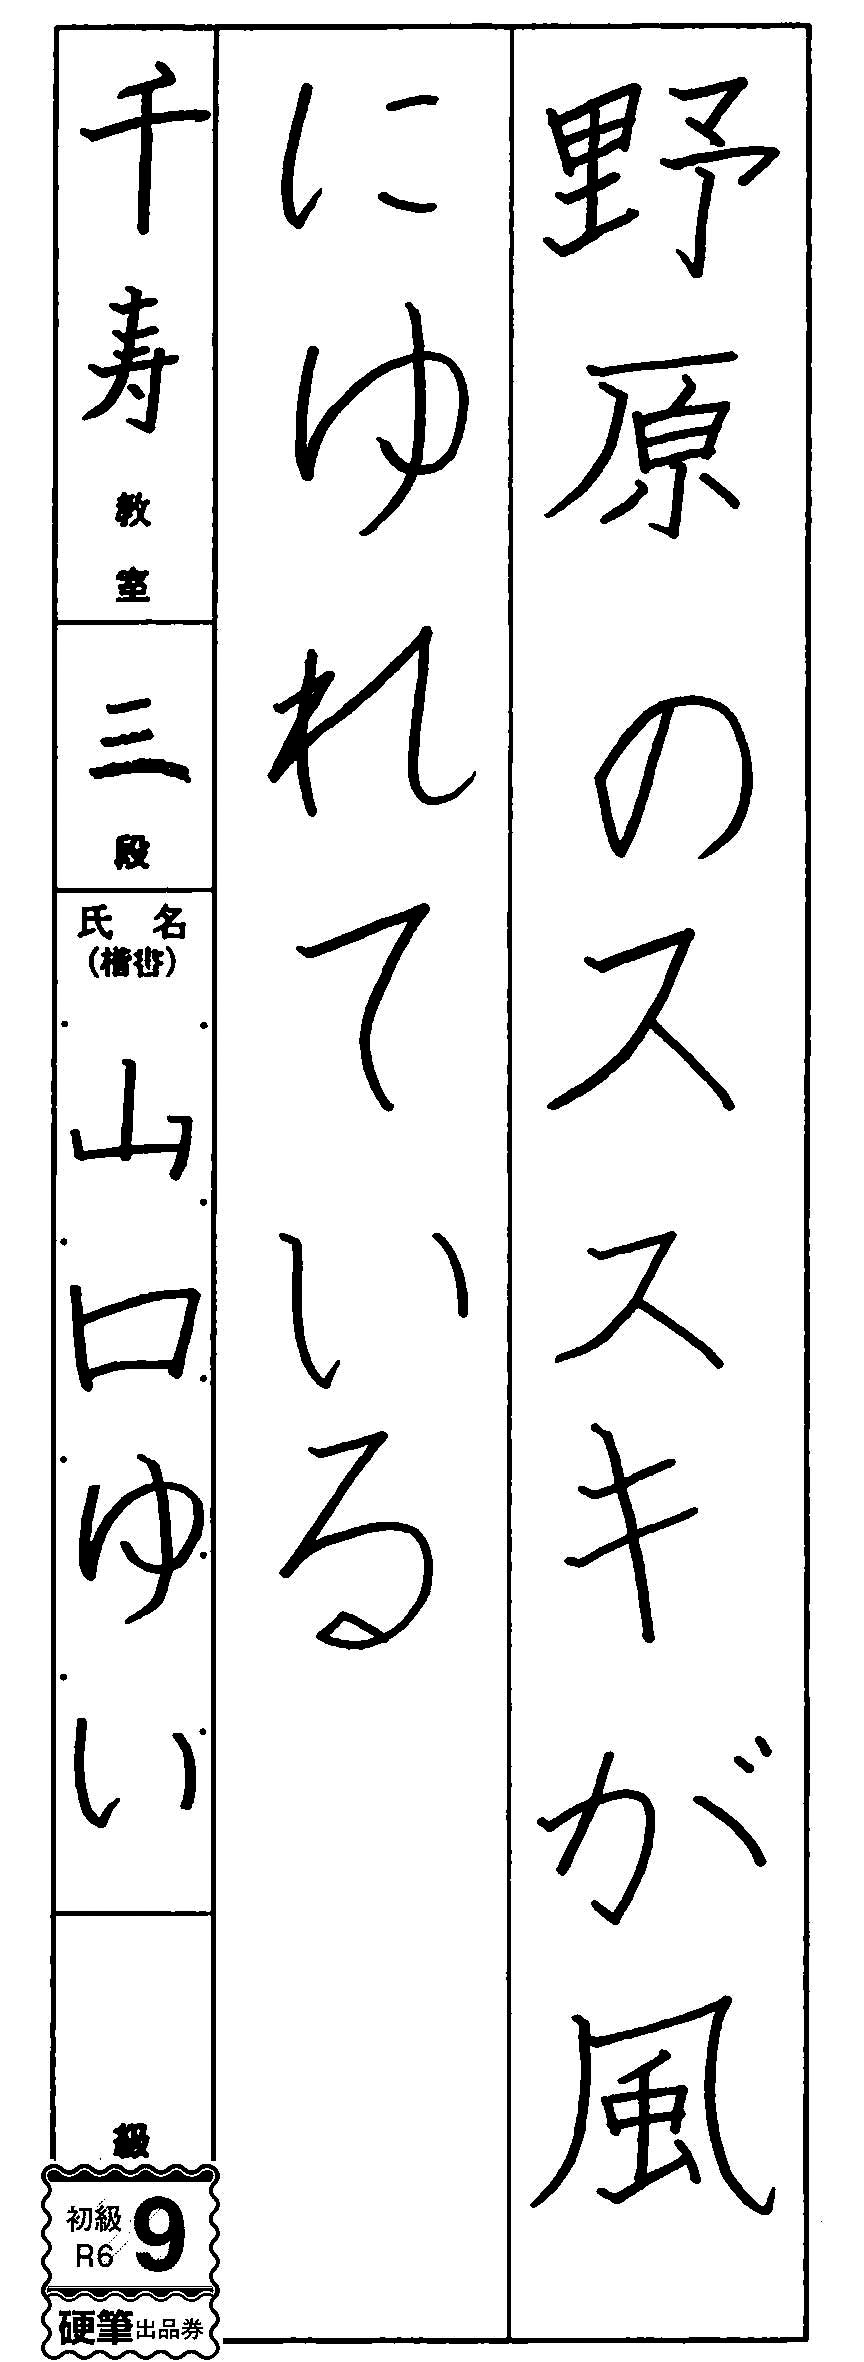 野原のススキが風
にゆれている
千寿教室
三段
氏名
(楷書)
山口ゆい
級
初級
R6
9
硬筆出品券